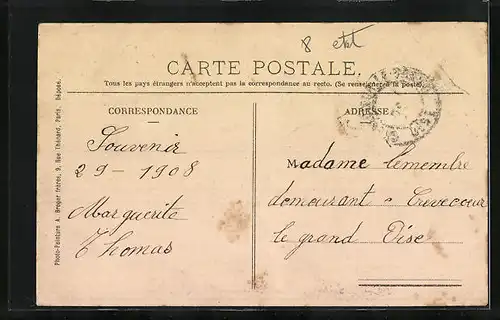 8 etat
CARTE POSTALE.
Tous les pays étrangers n'acceptent pas la correspondance au recto. (Se renseigner à la poste)
CORRESPONDANCE
ADRESSE
Souvenir
29-1908
Marguerite
Thomas
Madame Lemembre
demourant a Crevecoeur
le grand Oise
Photo-Peinture A. Breger frères, 9, Rue Thénard, Paris. Déposé.